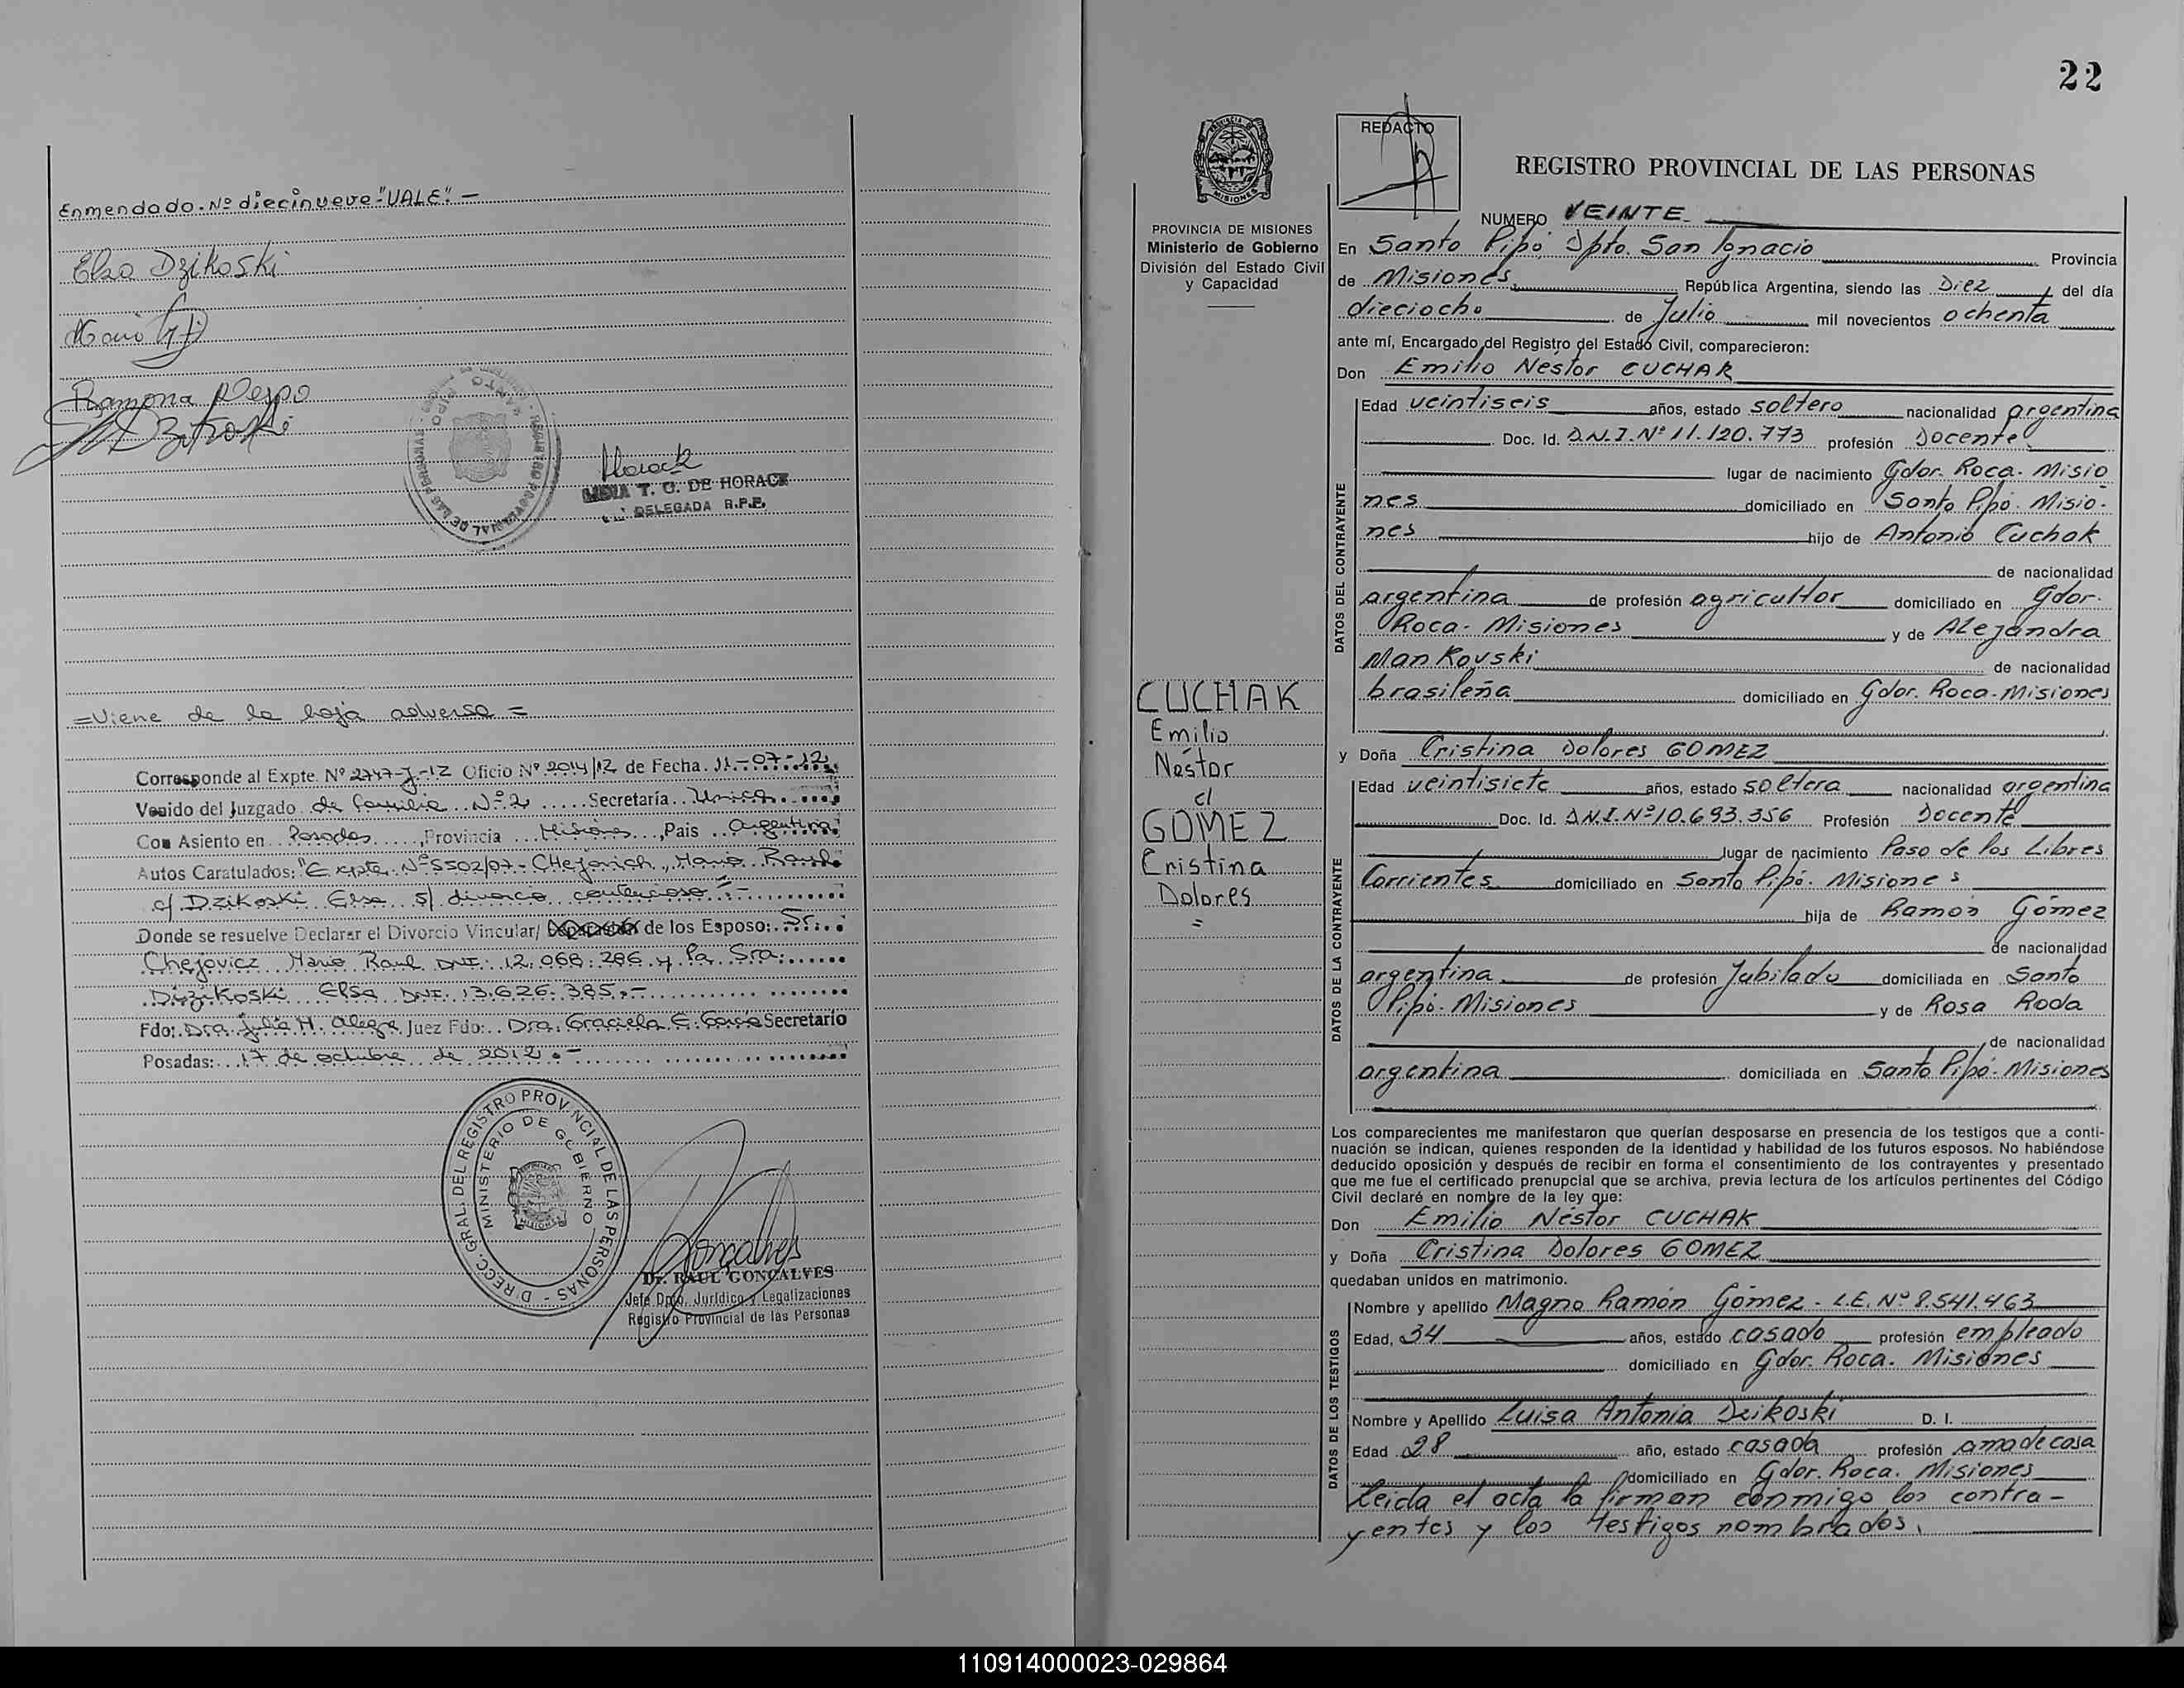 Enmendado. Nº diecinueve "VALE".-
Elsa Dzikoski
Mario
Ramona Respo
Dzikoski
Horack
LIDIA T. G. DE HORACK
DELEGADA R.P.P.
=Viene de la hoja adversa=
Corresponde al Expte. Nº 2747-J-12 Oficio Nº 2014/12 de Fecha. 11-07-12
Venido del Juzgado de Familia Nº 2 Secretaría Unica
Con Asiento en Posadas, Provincia Misiones, Pais Argentina
Autos Caratulados: "Expte. Nº 5502/07- CHejovich, Mario Raul
c/ Dzikoski Elsa s/ divorcio contencioso".-
Donde se resuelve Declarar el Divorcio Vincular/ de los Esposo: Sr.
Chejovicz Mario Raul DNI: 12.068.286 y la Sra:
Dizikoski Elsa DNI. 13.626.385.-
Fdo: Dra. Julia H. Alegre Juez Fdo: Dra. Graciela E. Secretario
Posadas: 17 de octubre de 2012.-
DIRECC. GRAL. DEL REGISTRO PROVINCIAL DE LAS PERSONAS -
MINISTERIO DE GOBIERNO
MISIONES
Goncalves
Dr. RAUL GONCALVES
Jefe Dpto. Jurídico y Legalizaciones
Registro Provincial de las Personas
22
PROVINCIA DE MISIONES
Ministerio de Gobierno
División del Estado Civil
y Capacidad
CUCHAK
Emilio
Néstor
c/
GOMEZ
Cristina
Dolores
=
REDACTO
REGISTRO PROVINCIAL DE LAS PERSONAS
NUMERO VEINTE.
En Santo Pipó, Dpto. San Ignacio Provincia
de Misiones, República Argentina, siendo las Diez del día
dieciocho de Julio mil novecientos ochenta
ante mí, Encargado del Registro del Estado Civil, comparecieron:
Don Emilio Néstor CUCHAK
DATOS DEL CONTRAYENTE
Edad veintiseis años, estado soltero nacionalidad argentina
Doc. Id. D.N.I. Nº 11.120.773 profesión Docente
lugar de nacimiento Gdor. Roca. Misio
nes domiciliado en Santo Pipó. Misio-
nes hijo de Antonio Cuchak
de nacionalidad
argentina de profesión agricultor domiciliado en Gdor.
Roca- Misiones y de Alejandra
Mankovski de nacionalidad
brasileña domiciliado en Gdor. Roca-Misiones
y Doña Cristina Dolores GOMEZ
DATOS DE LA CONTRAYENTE
Edad veintisiete años, estado soltera nacionalidad argentina
Doc. Id. D.N.I. Nº 10.693.356 Profesión Docente
lugar de nacimiento Paso de los Libres
Corrientes domiciliado en Santo Pipó. Misiones
hija de Ramón Gómez
de nacionalidad
argentina de profesión Jubilado domiciliada en Santo
Pipó- Misiones y de Rosa Roda
de nacionalidad
argentina domiciliada en Santo Pipó- Misiones
Los comparecientes me manifestaron que querían desposarse en presencia de los testigos que a conti-
nuación se indican, quienes responden de la identidad y habilidad de los futuros esposos. No habiéndose
deducido oposición y después de recibir en forma el consentimiento de los contrayentes y presentado
que me fue el certificado prenupcial que se archiva, previa lectura de los artículos pertinentes del Código
Civil declaré en nombre de la ley que:
Don Emilio Néstor CUCHAK
y Doña Cristina Dolores GOMEZ
quedaban unidos en matrimonio.
DATOS DE LOS TESTIGOS
Nombre y apellido Magno Ramón Gómez - L.E. Nº 8.541.463
Edad, 34 años, estado casado profesión empleado
domiciliado en Gdor. Roca. Misiones
Nombre y Apellido Luisa Antonia Dzikoski D. I.
Edad 28 año, estado casada profesión ama de casa
domiciliado en Gdor. Roca. Misiones
Leída el acta la firman conmigo los contra-
yentes y los testigos nombrados.
110914000023-029864